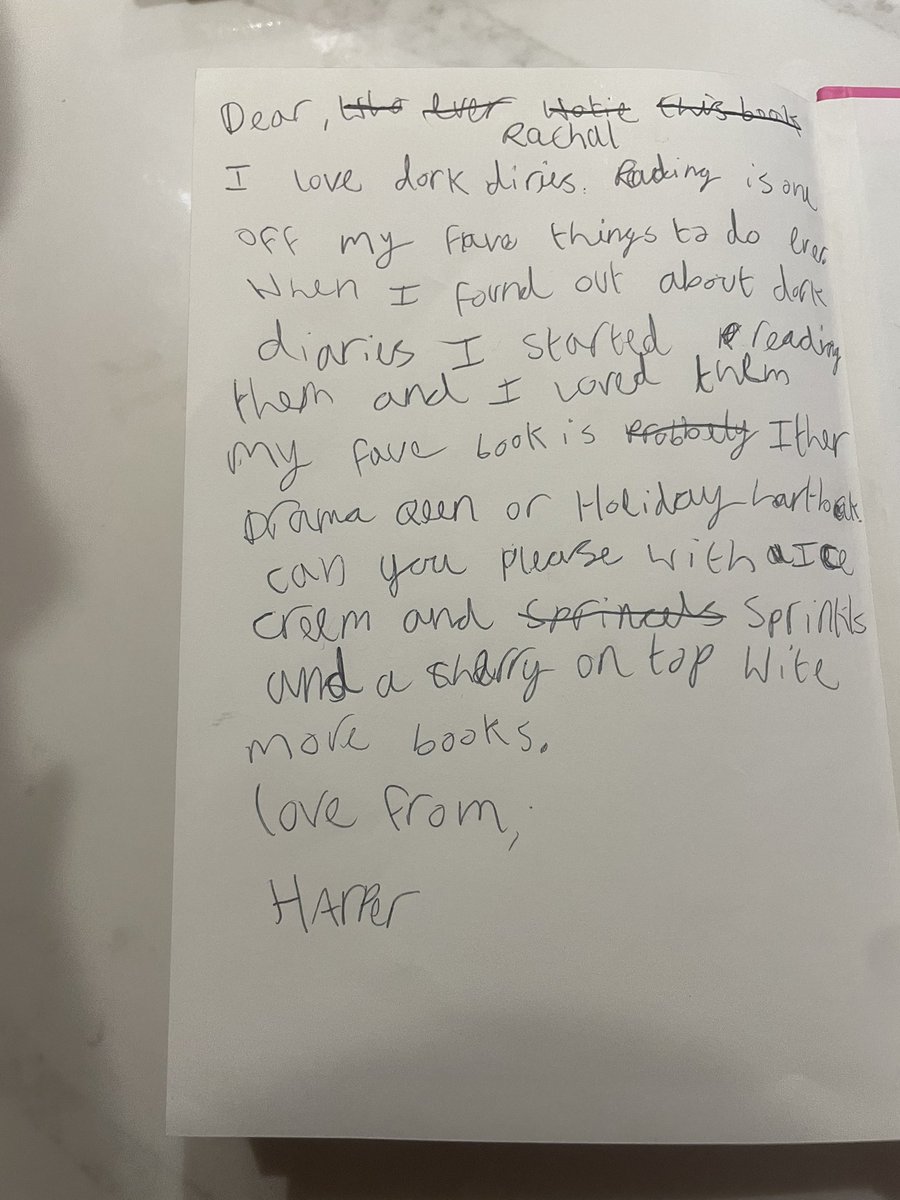 Dear, who ever Wotie this book
Rachal
I love dork diries. Reading is one
off my fave things to do ever.
When I found out about dork
diaries I started reading
them and I loved them
my fave book is probboly Ither
Drama Qeen or Holiday hartbak.
can you please with a Ice
creem and sprincals Sprinkls
and a sharry on top Wite
more books.
love from,
HARPer